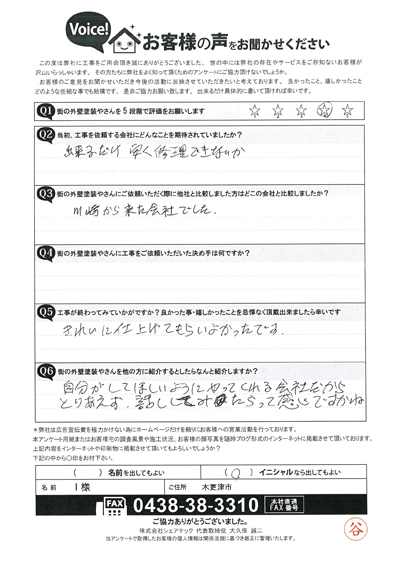 Voice! お客様の声をお聞かせください
この度は弊社に工事をご用命頂き誠にありがとうございました。世の中には弊社の存在やサービスをご存知ないお客様が
沢山いらっしゃいます。その方たちに弊社をよく知って頂くためのアンケートにご協力頂けないでしょうか。
お客様のご意見をお聞かせいただき今後の活動に反映させていただきたいと考えております。良かったこと、嬉しかったこと
どのような些細な事でも結構です。是非ご協力お願い致します。出来るだけ具体的に書いて頂ければ幸いです。
Q1 街の外壁塗装やさんを5段階で評価をお願いします
☆ ☆ ☆ ☆ ☆
Q2 当初、工事を依頼する会社にどんなことを期待されていましたか?
出来るだけ安く修理できないか
Q3 街の外壁塗装やさんにご依頼いただく際に他社と比較しました方はどこの会社と比較しましたか?
川崎から来た会社でした。
Q4 街の外壁塗装やさんに工事をご依頼いただいた決め手は何ですか?
Q5 工事が終わってみていかがですか?良かった事・嬉しかったことを忌憚なく頂戴出来ましたら幸いです
きれいに仕上げてもらいよかったです。
Q6 街の外壁塗装やさんを他の方に紹介するとしたらなんと紹介しますか?
自分がしてほしいようにやってくれる会社だから
とりあえず、話ししてみたらって感じですかね
*弊社は広告宣伝費を極力かけない為にホームページだけを頼りにお客様への営業活動を行っております。
本アンケート用紙またはお客様宅の調査風景や施工状況、お客様の顔写真を随時ブログ形式のインターネットに掲載させて頂いております。
上記内容をインターネットや印刷物に掲載させて頂いてもよろしいでしょうか?
下記の中から〇印をお付け下さい。
( )名前を出してもよい (〇)イニシャルなら出してもよい
名前 I様 ご住所 木更津市
FAX 0438-38-3310 本社直通 FAX番号
ご協力ありがとうございました。
株式会社シェアテック 代表取締役 大久保 誠二
当アンケートで取得したお客様の個人情報は関係法規に基づき厳正に管理いたします。
谷